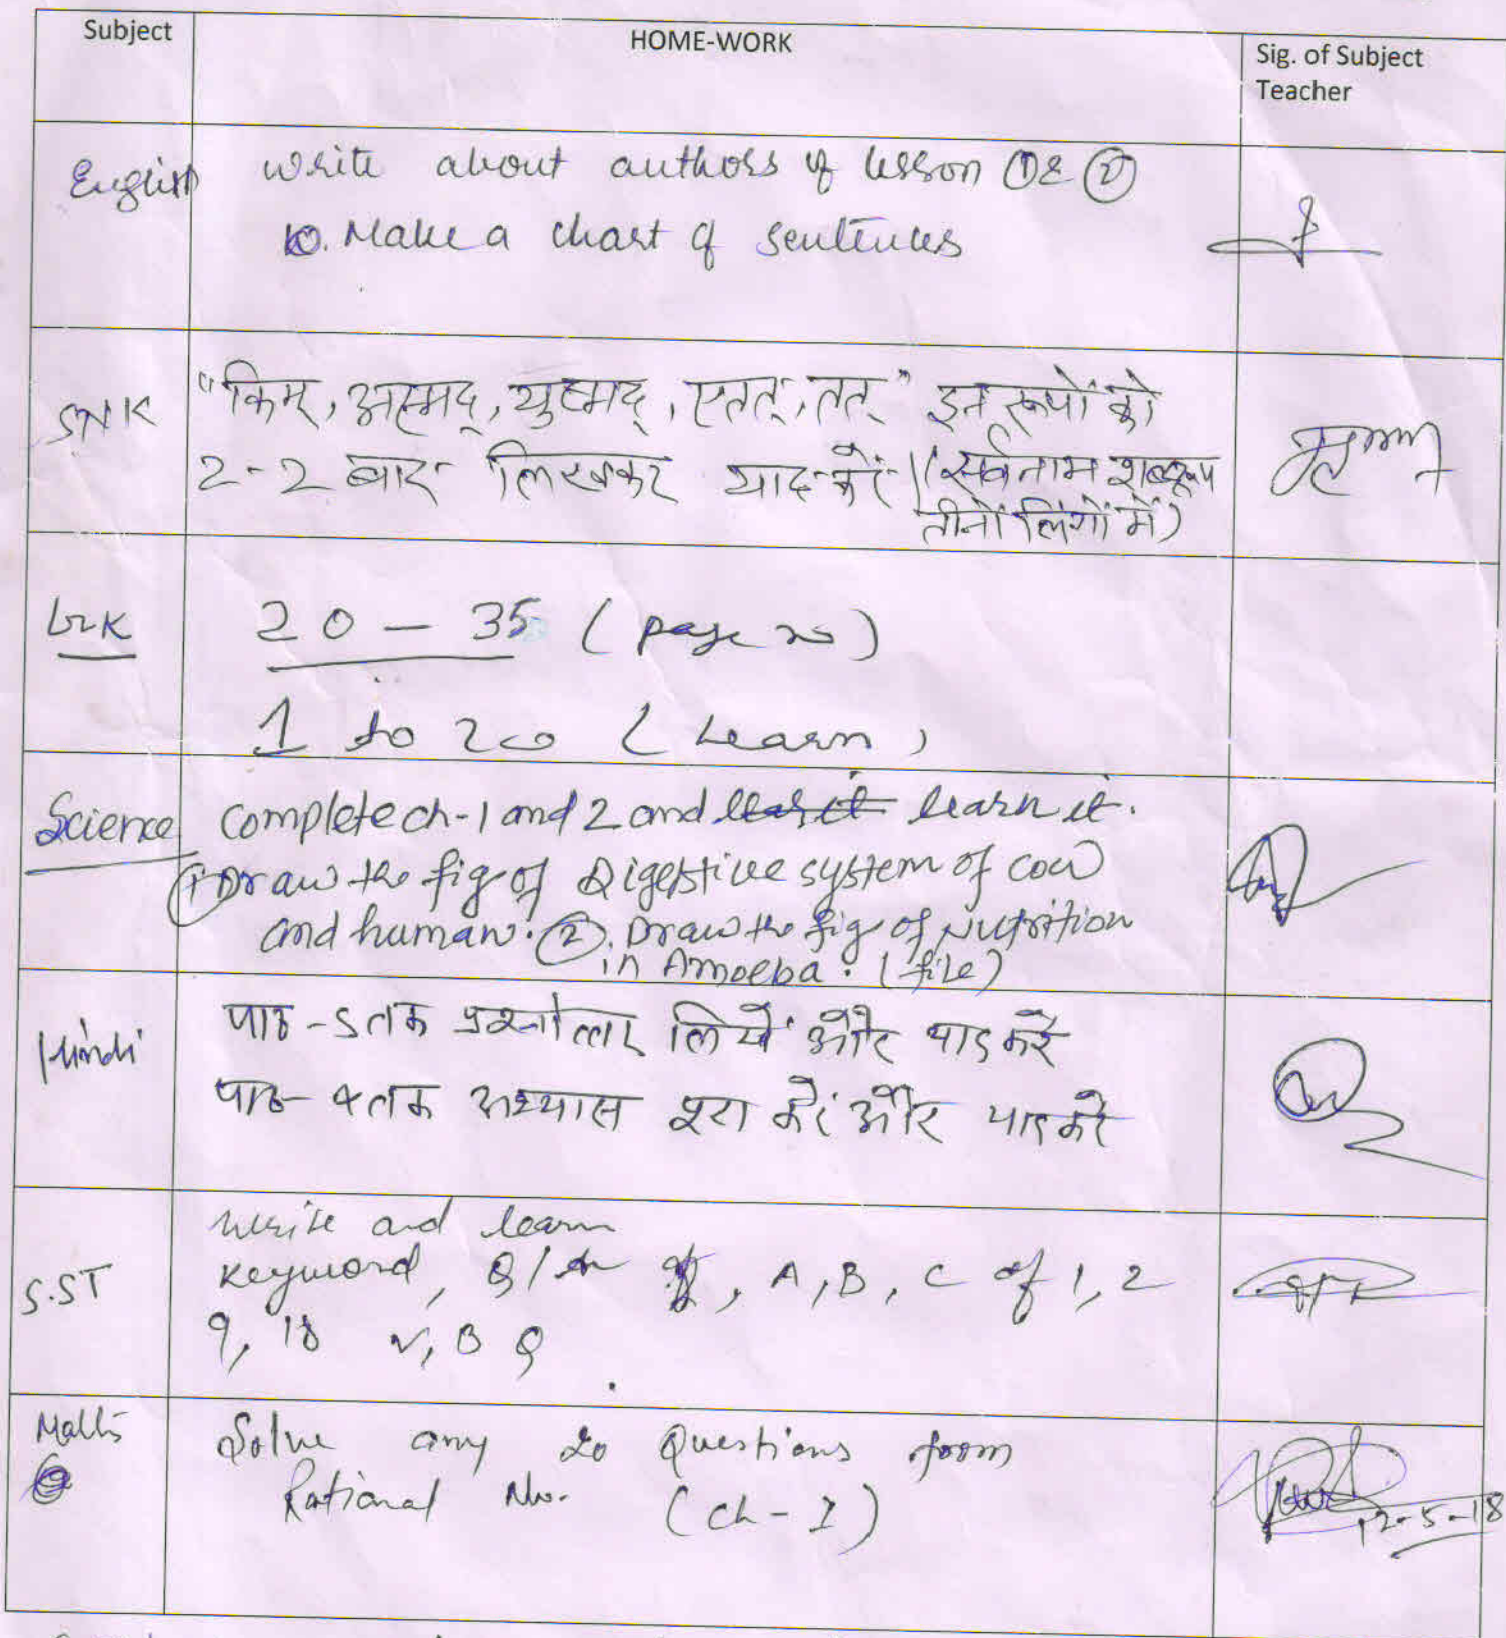 Subject HOME-WORK Sig. of Subject
Teacher
English write about authors of lesson ① & ②
Make a chart of sentences
SNK "किम्, अस्मद्, युष्मद्, एतत्, तत्" इन रूपों को
2-2 बार लिखकर याद करें। (सर्वनाम शब्दरूप
तीनों लिंगों में)
GK 20 - 35 (page no)
1 to 20 (Learn)
Science complete ch-1 and 2 and learn it.
① Draw the fig of Digestive system of cow
and human. ②. Draw the fig of Nutrition
in Amoeba. (file)
Hindi पाठ-5 तक प्रश्नोत्तर लिखें और याद करें
पाठ- 4 तक अभ्यास पूरा करें और याद करें
write and learn
S.ST keyword, Q/A of, A, B, C of 1, 2
9, 10 V, B Q.
Maths Solve any 20 Questions from
Rational No. (ch-1)
12-5-18